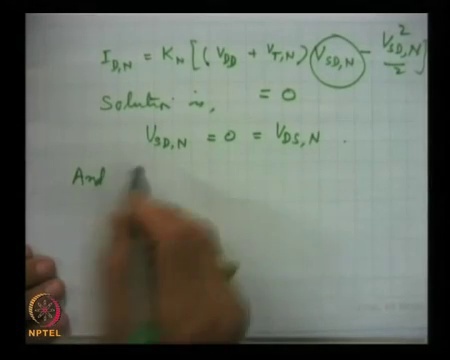 I_{D,N} = K_N [(V_{DD} + V_{T,N}) V_{SD,N} - \frac{V_{SD,N}^2}{2}]
Solution is, = 0
V_{SD,N} = 0 = V_{DS,N} .
And
NPTEL